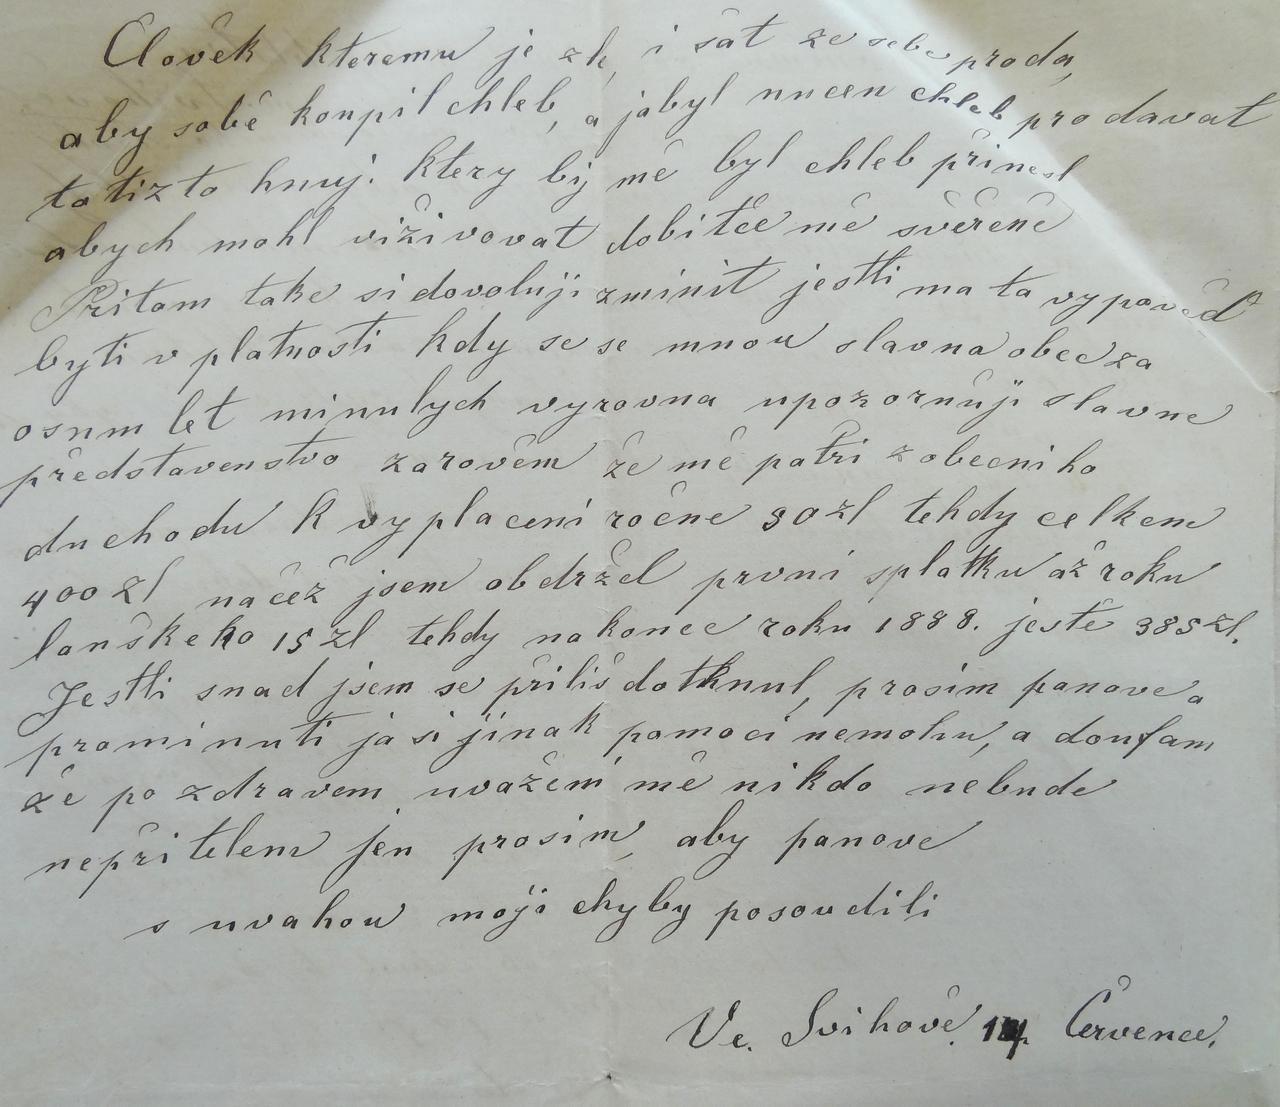 Človék kteremu je zle, i šat ze sebe proda,
aby sobě koupil chleb, a jabyl nucen chleb prodavat
totižto hnuj. ktery by mě byl chleb přinesl
abych mohl viživovat dobitče mě svěřené
Pritom take si dovoluji zminit jestli ma ta vypověď
byti v platnosti kdy se se mnou slavna obec za
osum let minulych vyrovna upozornuji slavne
představenstvo zarověm že mě patři z obecniho
duchodu k vyplaceni ročne 50 zl tehdy celkem
400 zl načež jsem obdržel prvni splatku až roku
lonškeho 15 zl tehdy nakonec roku 1888. ješte 385 zl.
Jestli snad jsem se přiliš dotknul, prosim panove o
prominuti ja si jinak pomoci nemohu, a doufam
že po zdravem uvaženi mě nikdo nebude
nepřitelem jen prosim, aby panove
s uvahou moji chyby posoudili
Ve. Svihově. 14 Července.